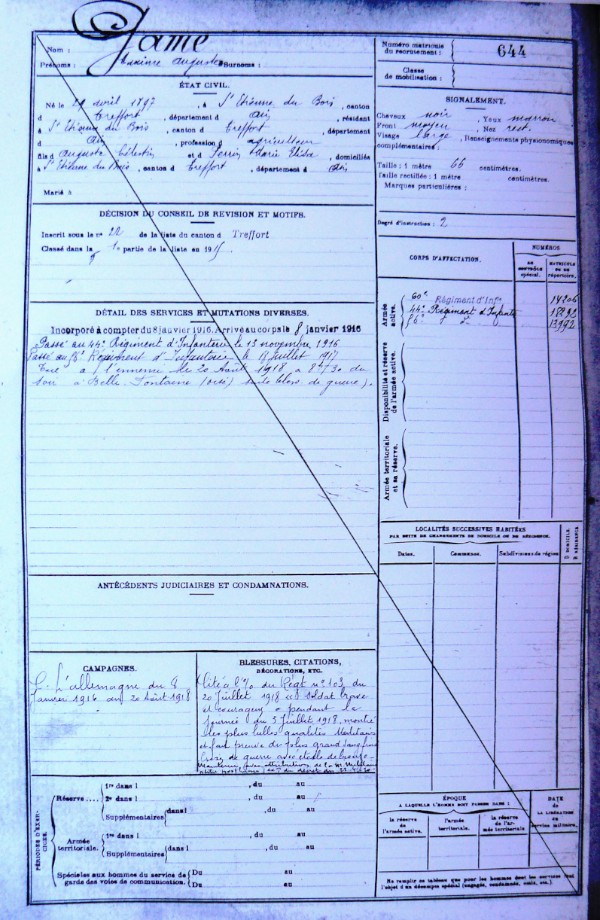 Jame
Nom :
Prénoms : Maxime Auguste Surnoms :
ÉTAT CIVIL.
Né le avril 1897, à St Etienne du Bois, canton
d Treffort, département d Ain, résidant
à St Etienne du Bois, canton d Treffort, département
d Ain, profession d agriculteur
fils d Auguste Célestin et d Marie Elisa, domiciliés
à St Etienne du Bois, canton d Treffort, département d Ain
Marié à
DÉCISION DU CONSEIL DE REVISION ET MOTIFS.
Inscrit sous le n° 22 de la liste du canton d Treffort
Classé dans la 1e partie de la liste en 191
DÉTAIL DES SERVICES ET MUTATIONS DIVERSES.
Incorporé à compter du 8 janvier 1916. Arrivé au corps le 8 janvier 1916
Passé au 44e Régiment d'Infanterie le 13 novembre 1916
Passé au Régiment d'Infanterie le 18 juillet 1917
Tué à l'ennemi le 20 Août 1918, à 8h30 du
soir à Belle Fontaine (Oise) suite bless de guerre).
ANTÉCÉDENTS JUDICIAIRES ET CONDAMNATIONS.
CAMPAGNES.
L'allemagne du 8
Janvier 1916 au 20 Août 1918
BLESSURES, CITATIONS,
DÉCORATIONS, ETC.
Cité à l'O/ du Régt n° 103 du
20 Juillet 1918 Soldat brave
et courageux a pendant la
journée du 3 Juillet 1918, montré
des plus belles qualités Militaires
et fait preuve du plus grand
Croix de guerre avec étoile de bronze.
PÉRIODES D'EXERCICES.
Réserve....
1re dans l , du au
2e dans l , du au
Supplémentaires dans l , du au
, du au
Armée territoriale.
1re dans l , du au
Supplémentaires dans l , du au
Spéciales aux hommes du service de
garde des voies de communication.
Du au
Du au
Numéro matricule
du recrutement :
644
Classe
de mobilisation :
SIGNALEMENT.
Cheveux noir, Yeux marron
Front moyen, Nez rect.
Visage large, Renseignements physionomiques
complémentaires
Taille : 1 mètre 66 centimètres.
Taille rectifiée : 1 mètre centimètres.
Marques particulières :
Degré d'instruction : 2
CORPS D'AFFECTATION.
NUMÉROS
AU CONTRÔLE spécial.
MATRICULE OU DU répertoire.
Armée active.
60e Régiment d'Infie
44e Régiment d'Infanterie
Disponibilité et réserve
de l'armée active.
Armée territoriale
et sa réserve.
LOCALITÉS SUCCESSIVES HABITÉES
PAR SUITE DE CHANGEMENTS DE DOMICILE OU DE RÉSIDENCE.
Dates.
Communes.
Subdivisions de région
D. DOMICILE
R. RÉSIDENCE.
ÉPOQUE
À LAQUELLE L'HOMME DOIT PASSER DANS :
la réserve de l'armée active.
l'armée territoriale.
la réserve de l'armée territoriale
DATE
DE LA LIBÉRATION
du service militaire.
Ne remplir ce tableau que pour les hommes dont les services font
l'objet d'un décompte spécial (engagés, condamnés, omis, etc.)